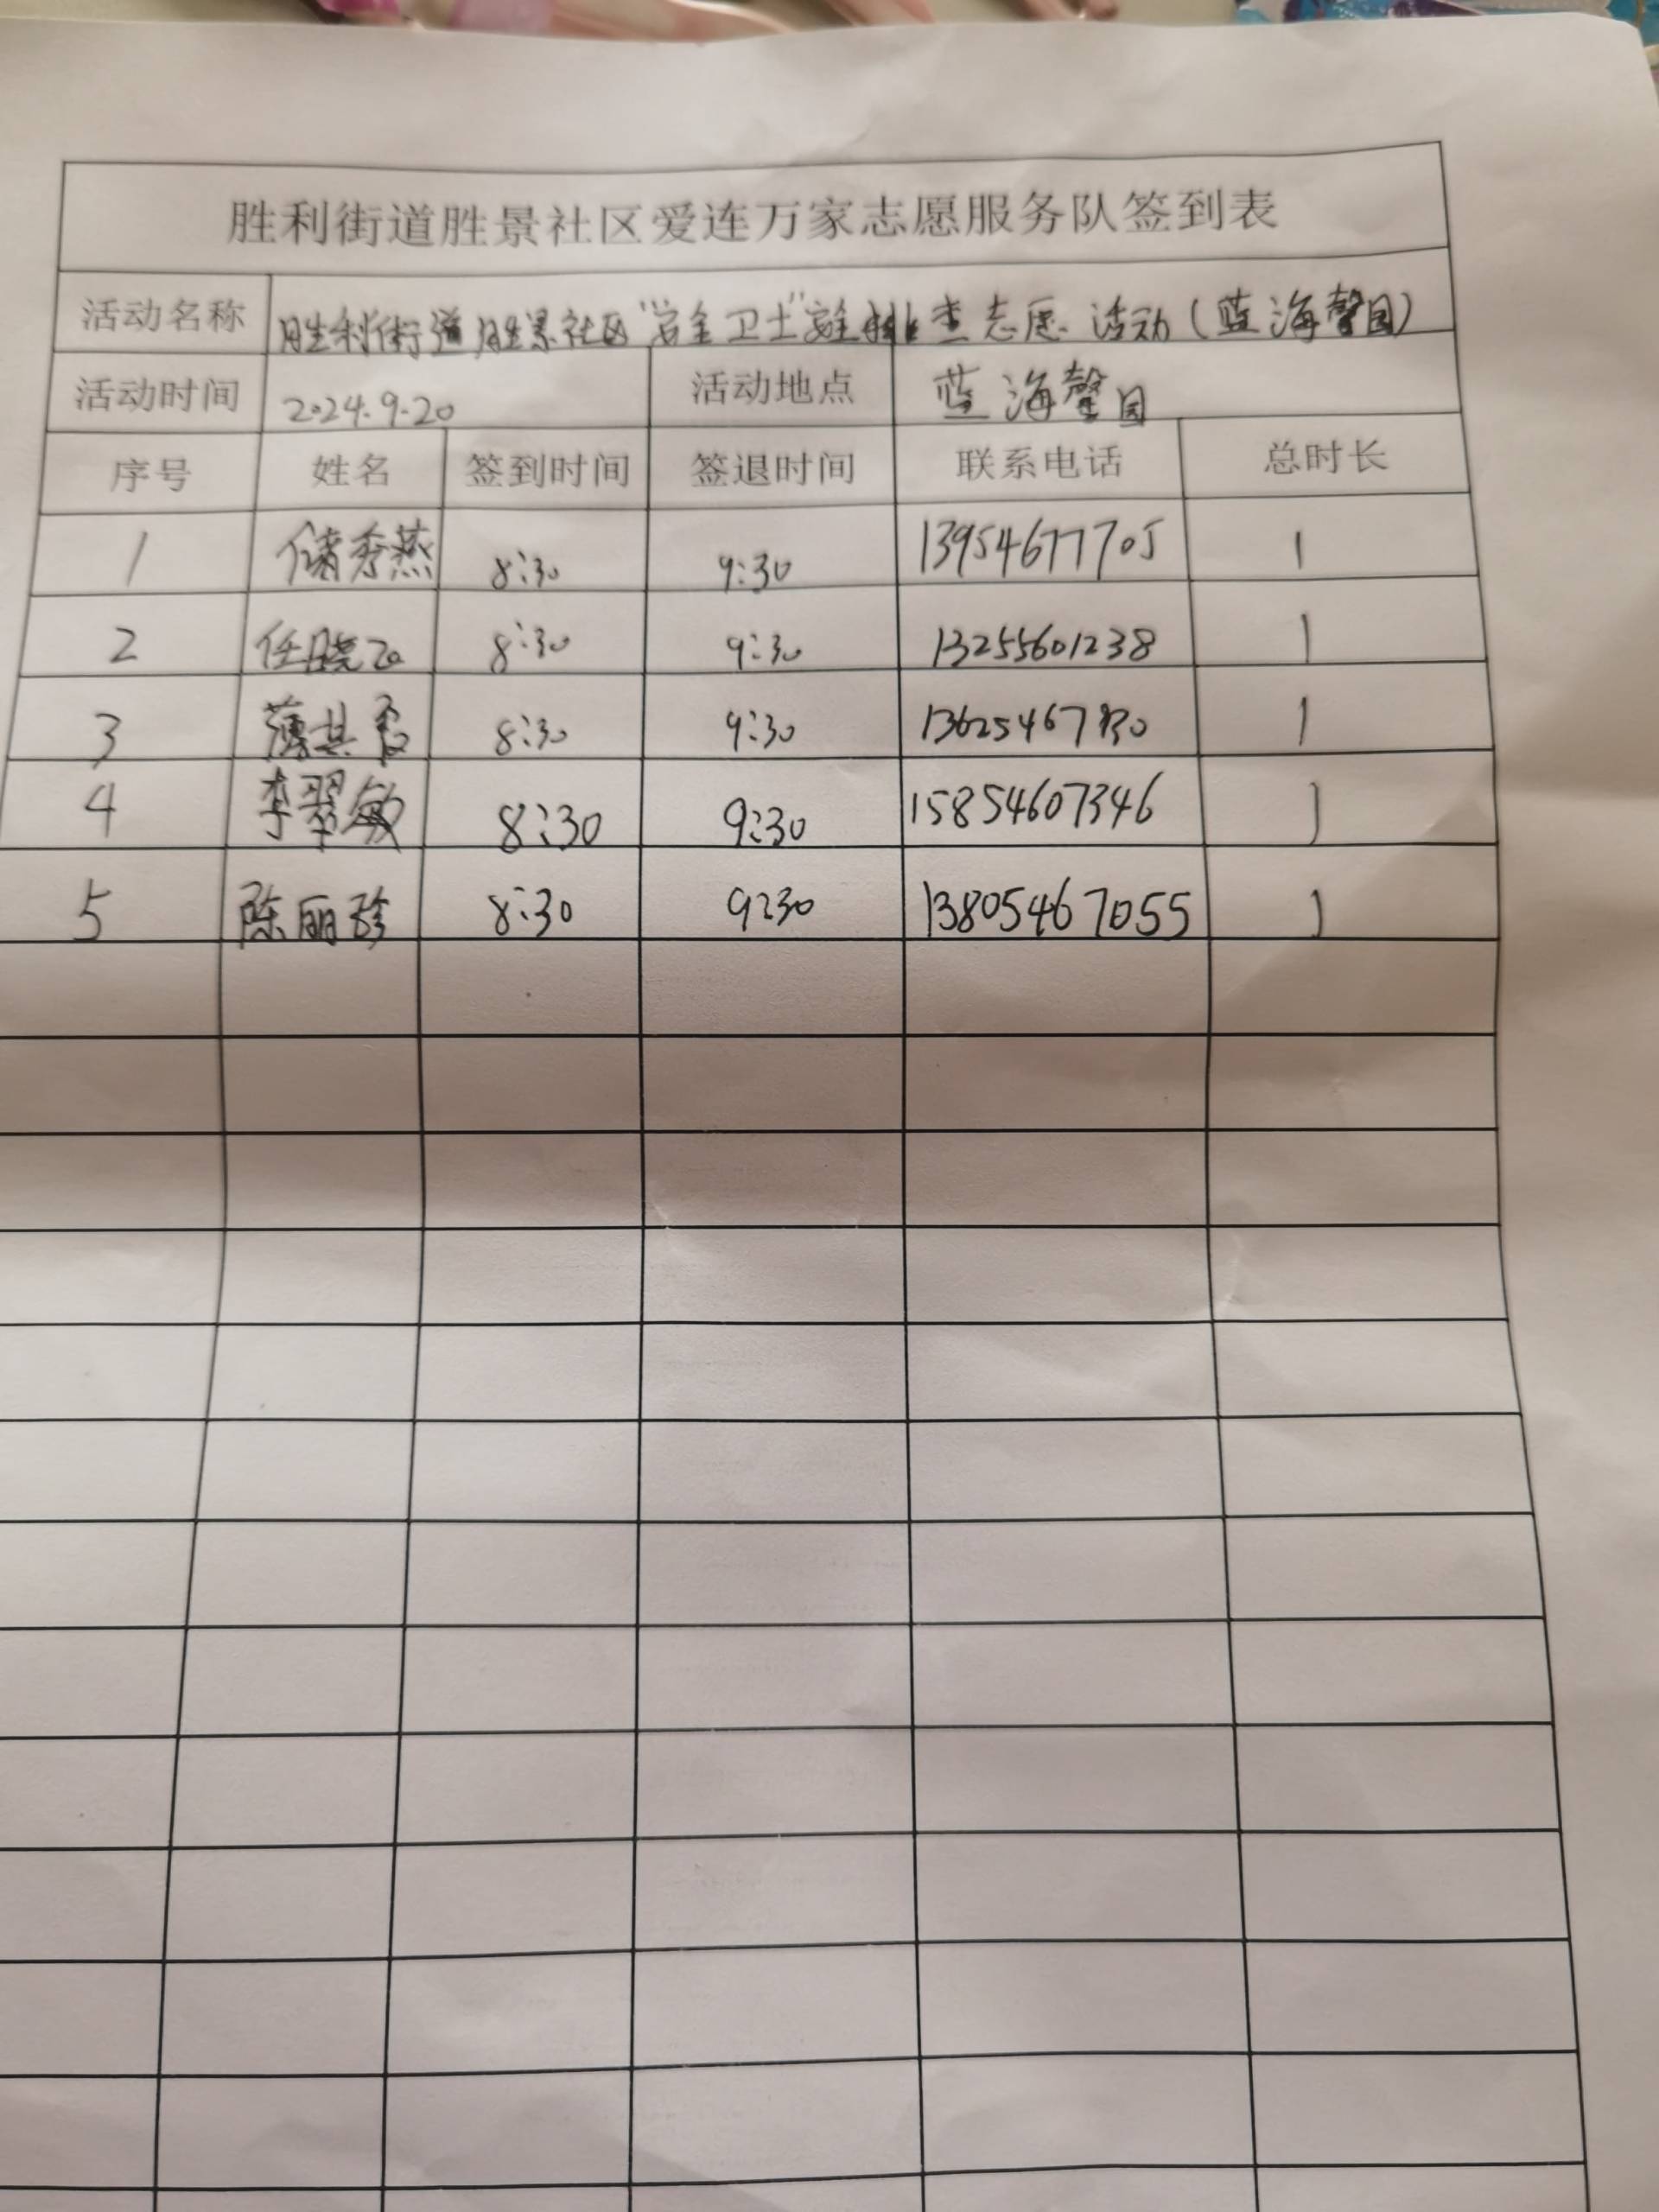 胜利街道胜景社区爱连万家志愿服务队签到表
活动名称 胜利街道胜景社区“安全卫士”安全排查志愿活动（蓝海馨园）
活动时间 2024.9.20 活动地点 蓝海馨园
序号 姓名 签到时间 签退时间 联系电话 总时长
1 储秀燕 8:30 9:30 13954677705 1
2 任晓 8:30 9:30 13255601238 1
3 薄其 8:30 9:30 1
4 李翠敏 8:30 9:30 15854607346 1
5 陈丽珍 8:30 9:30 13805467055 1